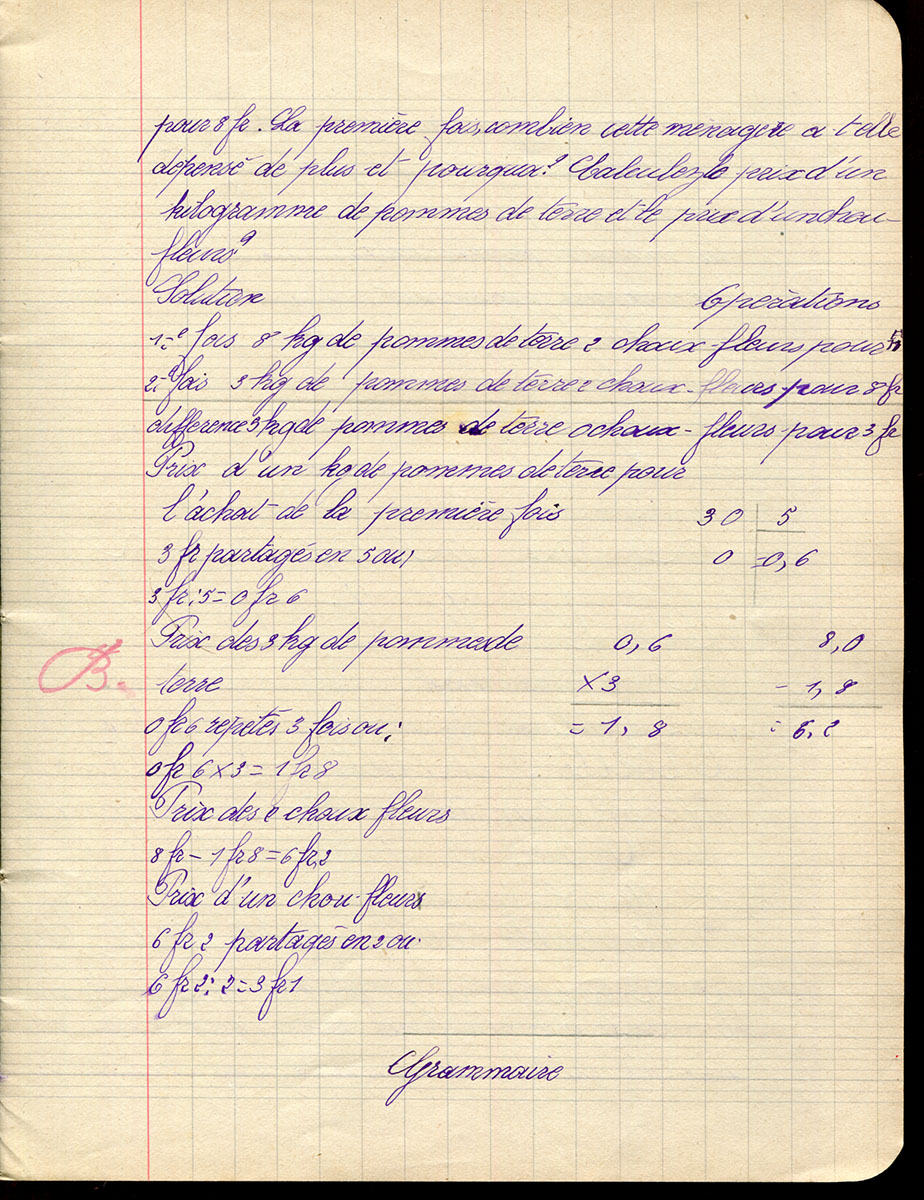 pour 8 fr. La première fois, combien cette ménagère a t elle
dépensé de plus et pourquoi? Calculez le prix d'un
kilogramme de pommes de terre et le prix d'un chou-
fleurs?
Solution Opérations
1=e fois 8 kg de pommes de terre 2 choux-fleurs pour
2=e fois 3 kg de pommes de terre 2 choux-fleurs pour 8 fr
différence 5 kg de pommes de terre 0 choux-fleurs pour 3 fr
Prix d'un kg de pommes de terre pour
l'achat de la première fois 30 5
3 fr partagés en 5 ou; 0 =0,6
3 fr : 5 = 0 fr 6
Prix des 3 kg de pommes de 0,6 8,0
B. terre ×3 - 1,8
0 fr 6 répétés 3 fois ou: = 1,8 = 6,2
0 fr 6 × 3 = 1 fr 8
Prix des 2 choux fleurs
8 fr - 1 fr 8 = 6 fr,2
Prix d'un chou-fleurs
6 fr 2 partagés en 2 ou:
6 fr 2 : 2 = 3 fr 1
Grammaire